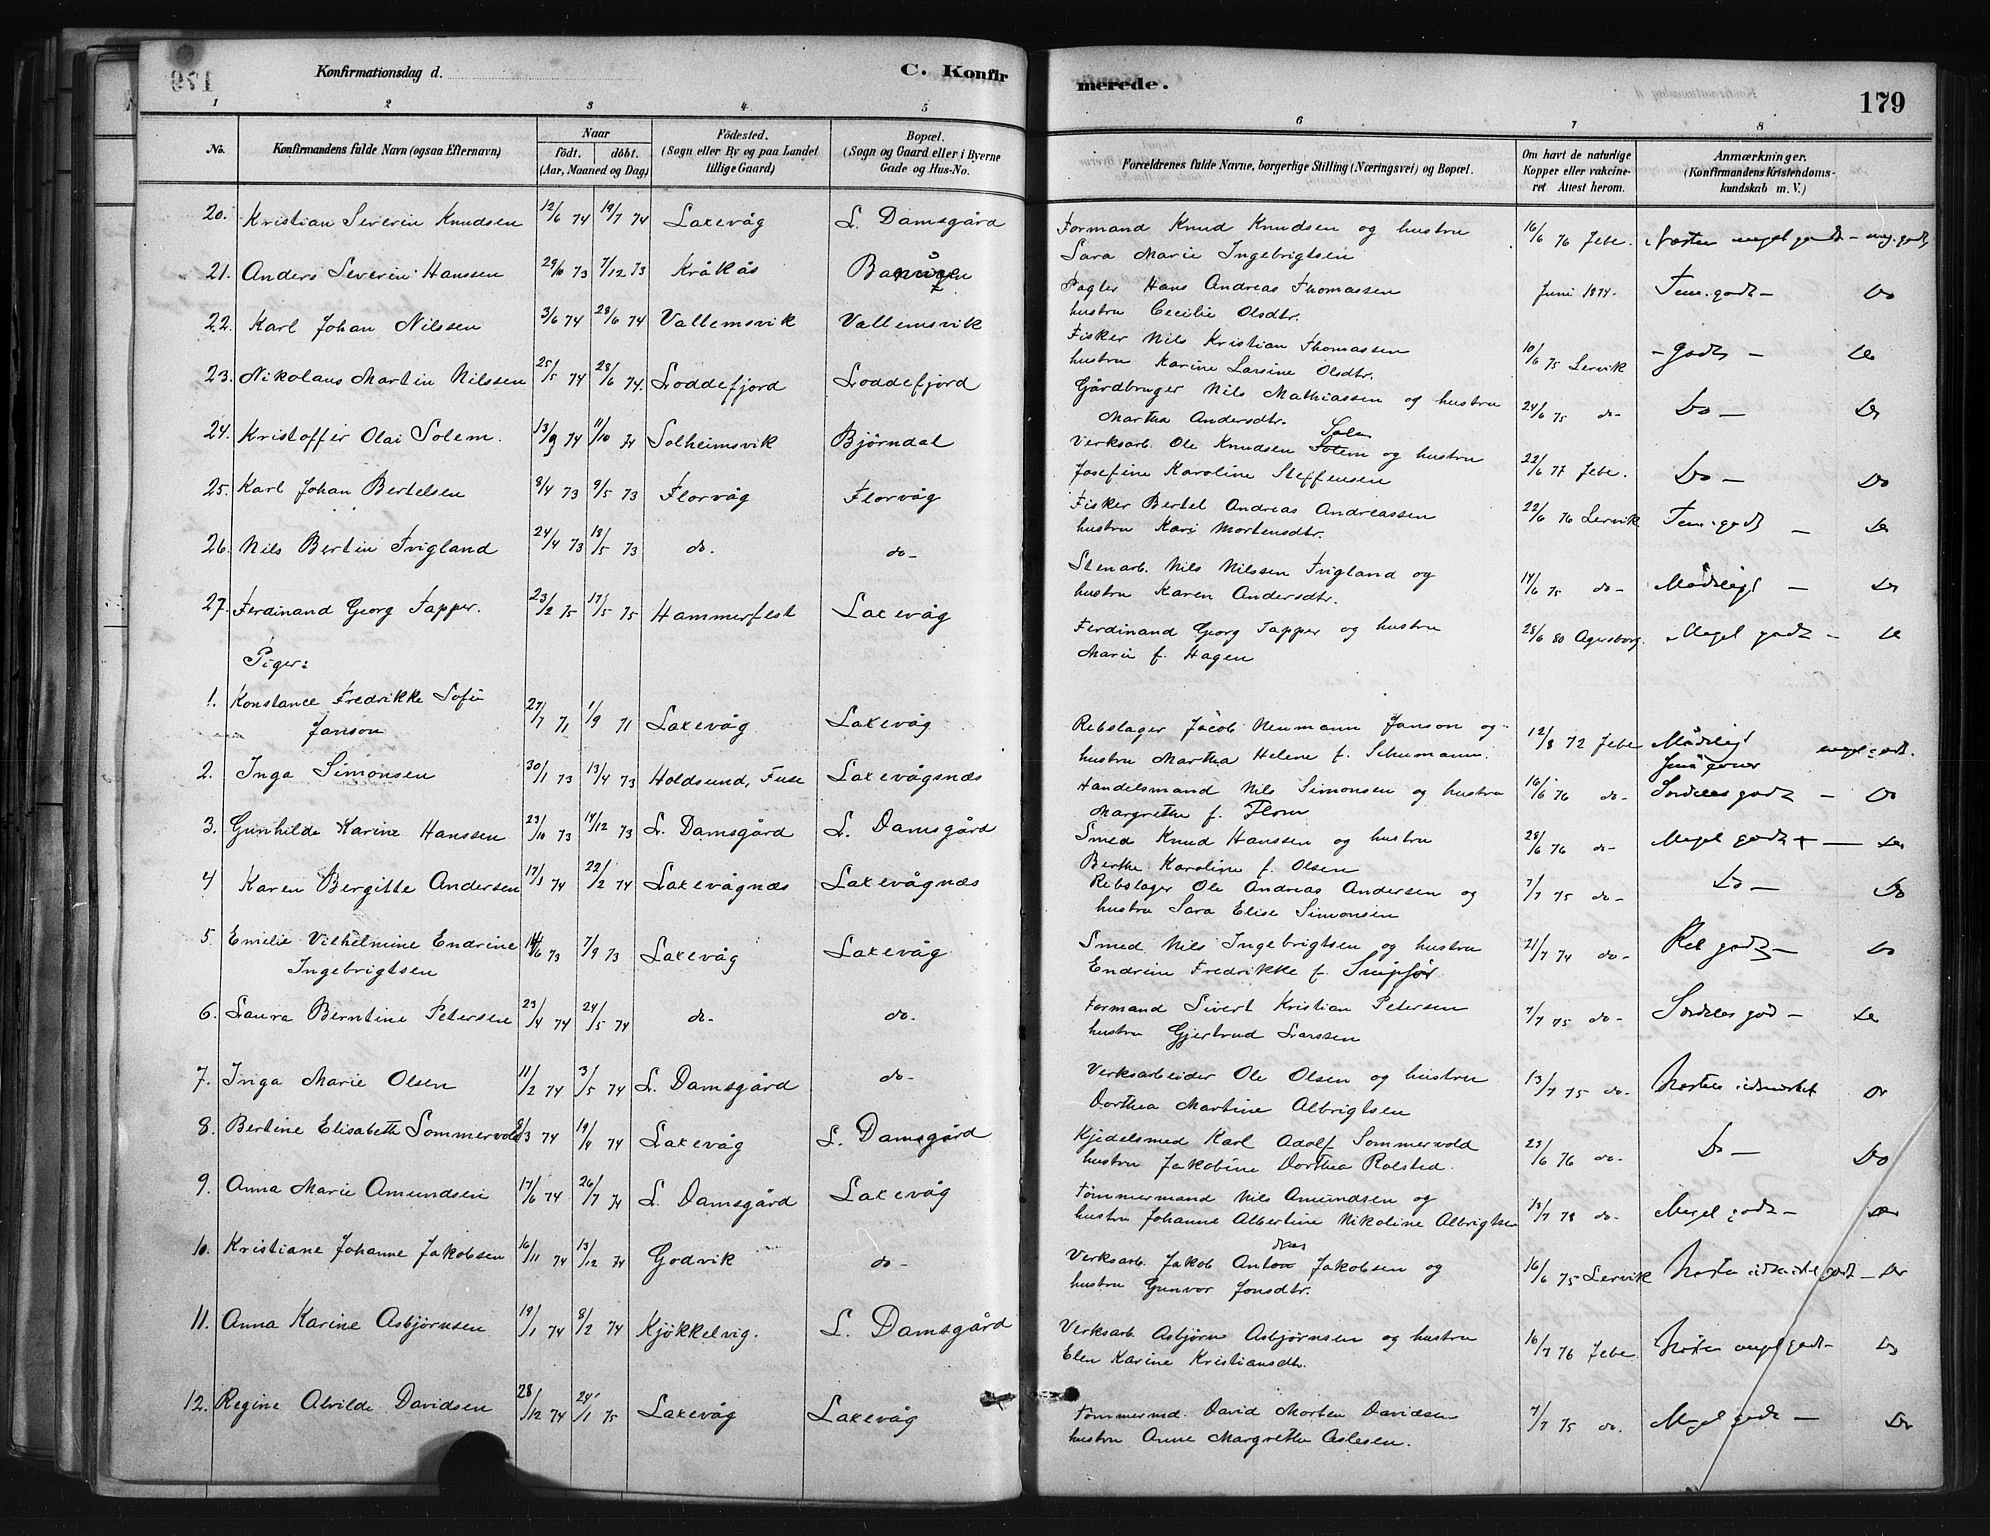 Konfirmationsdag d. C. Konfir merede. 179
1 2 3 4 5 6 7 8
No. Konfirmandens fulde Navn (ogsaa Efternavn) Naar födt. döbt. (Aar, Maaned og Dag) Födested. (Sogn eller By og paa Landet tillige Gaard) Bopæl. (Sogn og Gaard eller i Byerne Gade og Hus-No. Forældrenes fulde Navne, borgerlige Stilling (Næringsvei) og Bopæl. Om havt de naturlige Kopper eller vakcineret. Attest herom. Anmærkninger. (Konfirmandens Kristendomskundskab m. V.)
20. Kristian Severin Knudsen 12/6 74 19/7 74 Laxevåg L. Damsgård Formand Knud Knudsen og hustru
Sara Marie Ingebrigtsen 16/6 76 Jebe. Næsten meget godt - meg. godt
21. Anders Severin Hanssen 29/10 73 7/12 73 Kråkås Pagter Hans Andreas Thomassen
hustru Cecilie Olsdtr. Juni 1874. Tem. godt - Do
22. Karl Johan Nilssen 3/6 74 28/6 74 Vallemsvik Vallemsvik Fisker Nils Kristian Thomassen
hustru Karine Larsine Olsdtr. 10/6 75 Lervik - godt - Do
23. Nikolaus Martin Nilssen 25/5 74 28/6 74. Loddefjord Loddefjord Gårdbruger Nils Mathiassen og hustru
Martha Andersdtr. 24/6 75 do- Do - Do
24. Kristoffer Olai Solem. 13/9 74 11/10 74 Solheimsvik Bjørndal Verksarb. Ole Knudsen Solem og hustru
Josefine Karoline Steffensen 22/6 77 Jebe. Do - Do
25. Karl Johan Bertelsen 8/4 73 9/5 73 Florvåg Florvåg Fisker Bertel Andreas Andreassen
hustru Kari Mortensdtr. 22/6 76 Lervik Tem. godt - Do
26. Nils Bertin Tvigland 24/4 73 18/5 73 do. do- Stenarb. Nils Nilssen Tvigland og
hustru Karen Andersdtr. 14/6 75 do- Mådeligt - Do
27. Ferdinand Georg Tapper. 23/2 75 17/5 75 Hammerfest Laxevåg Ferdinand Georg Tapper og hustru
Marie f. Hagen 28/6 80 Meget godt - Do
Piger:
1. Konstance Fredrikke Sofie
Janson 27/7 71 1/9 71 Laxevåg Laxevåg Rebslager Jacob Neumann Janson og
hustru Martha Helene f. Schumann. 12/8 72 Jebe Mådeligt meget godt.
2. Inga Simonsen 30/1 73 13/4 73 Holdsund, Fuse Laxevågsnæs Handelsmand Nils Simonsen og hustru
Margrethe f. Flom 16/6 76 do- Særdeles godt - Do
3. Gunhilde Karine Hanssen 23/10 73 14/12 73 L. Damsgård L. Damsgård Smed Knud Hanssen og hustru
Berthe Karoline f. Olsen 28/6 76 do- Meget godt - Do
4 Karen Bergitte Andersen 17/1 74 22/2 74 Laxevågnæs Laxevågnæs Rebslager Ole Andreas Andersen og
hustru Sara Elise Simonsen 7/7 75 do- Do - Do
5. Emelie Vilhelmine Endrine
Ingebrigtsen 73 7/9 73 Laxevåg Laxevåg Smed Nils Ingebrigtsen og hustru
Endrine Fredrikke f. 21/7 74 do- Ret godt - Do
6. Laura Berntine Petersen 23/4 74 24/5 74 do- do- Formand Sivert Kristian Petersen
hustru Gjertrud Larssen 7/7 75 do- Særdeles god - Do
7. Inga Marie Olsen 11/2 74 3/5 74 L. Damsgård do- Verksarbeider Ole Olsen og hustru
Dorthea Martine Albrigtsen 13/7 75 do- Næsten udmærket Do
8. Bertine Elisabeth Sommervold 8/3 74 19/4 74 Laxevåg L. Damsgård Kjedelsmed Karl Adolf Sommervold
hustru Jakobine Dorthea Rolsted. 23/6 76 do- Do - Do
9. Anna Marie Amundsen 17/6 74 26/7 74 L. Damsgård Laxevåg Tömmermand Nils Amundsen og
hustru Johanne Albertine Nikoline Albrigtsen 78 do- Meget godt - Do
10. Kristiane Johanne Jakobsen 16/11 74 13/12 74 Godvik do- Verksarb. Jakob Jakobsen og
hustru Gunvor Jonsdtr. 16/6 75 Lervik Næsten udmærket godt - Do
11. Anna Karine Asbjørnsen 19/1 74 8/2 74 Kjökkelvig. L. Damsgård Verksarb. Asbjørn Asbjørnsen og hustru
Elen Karine Kristiansdtr. 16/7 76 Jebe Næsten meget godt - Do
12. Regine Alvilde Davidsen 28/12 74 24/1 75 Laxevåg Laxevåg Tömmermd. David Morten Davidsen
hustru Anne Margrethe Aslesen. 7/7 75 do. Meget godt - Do